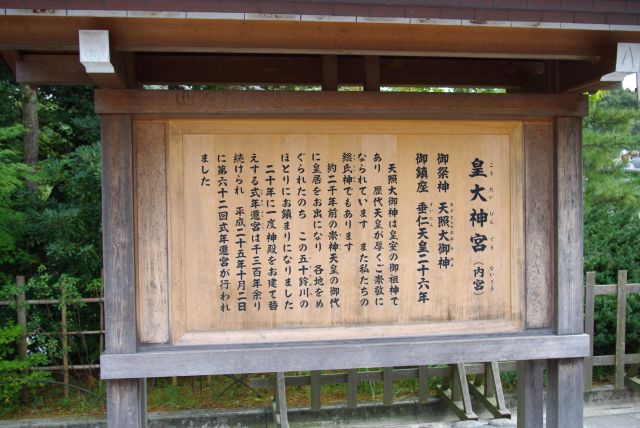 皇大神宮（内宮）
こうたいじんぐう　ないくう
御祭神　天照大御神
あまてらすおおみかみ
御鎮座　垂仁天皇二十六年
すいにん
天照大御神は皇室の御祖神で
あり　歴代天皇が厚くご崇敬に
なられています　また私たちの
総氏神でもあります
約二千年前の崇神天皇の御代
に皇居をお出になり　各地をめ
ぐられたのち　この五十鈴川の
ほとりにお鎮まりになりました
二十年に一度神殿をお建て替
えする式年遷宮は千三百年余り
続けられ　平成二十五年十月二日
に第六十二回式年遷宮が行われ
ました